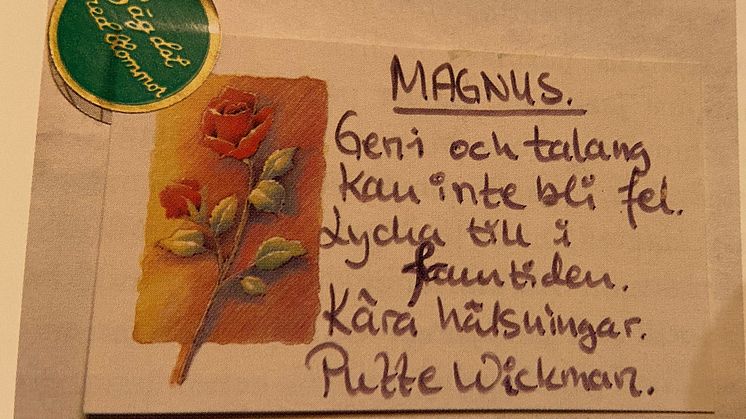 Säg det
med blommor
MAGNUS.
Geni och talang
kan inte bli fel.
Lycka till i
framtiden.
Kära hälsningar.
Putte Wickman.